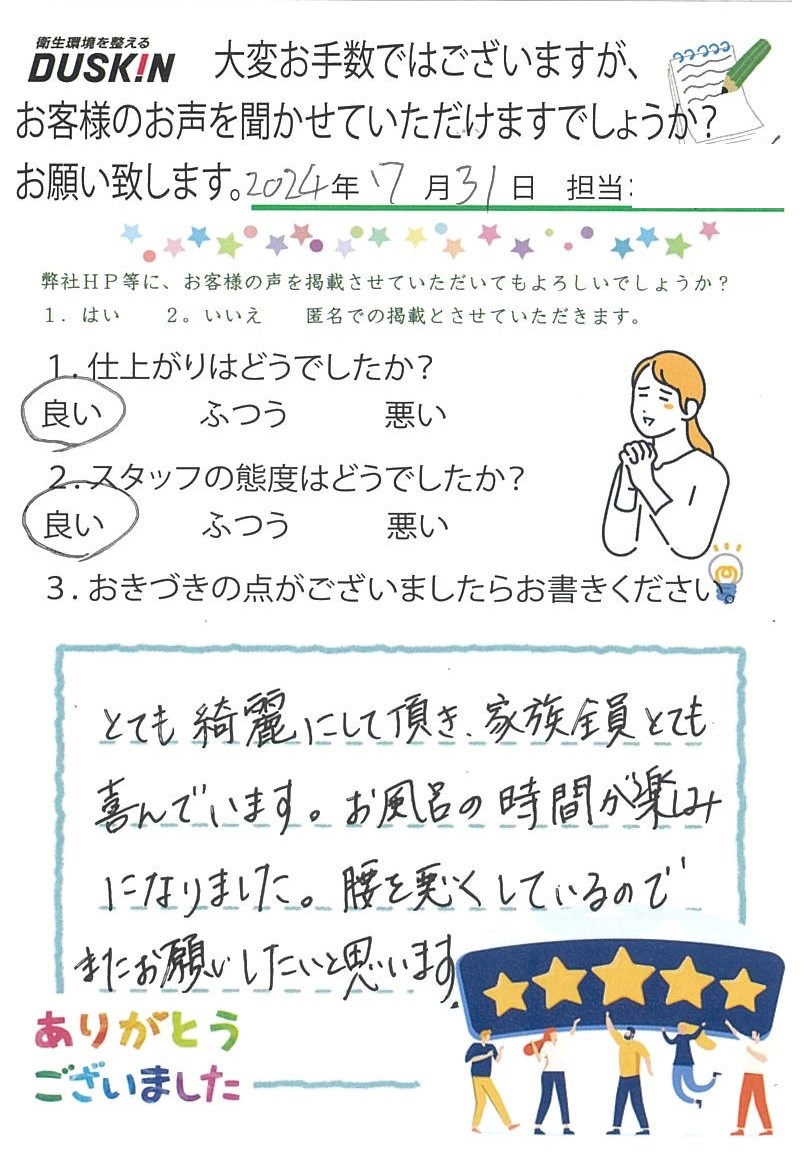 衛生環境を整える
DUSKIN
大変お手数ではございますが、
お客様のお声を聞かせていただけますでしょうか?
お願い致します。2024年 7 月 31 日 担当:
弊社HP等に、お客様の声を掲載させていただいてもよろしいでしょうか?
1. はい 2。いいえ 匿名での掲載とさせていただきます。
1. 仕上がりはどうでしたか?
良い ふつう 悪い
2. スタッフの態度はどうでしたか?
良い ふつう 悪い
3. おきづきの点がございましたらお書きください。
とても綺麗にして頂き、家族全員とても
喜んでいます。お風呂の時間が楽しみ
になりました。腰を悪くしているので
またお願いしたいと思います.
ありがとう
ございました